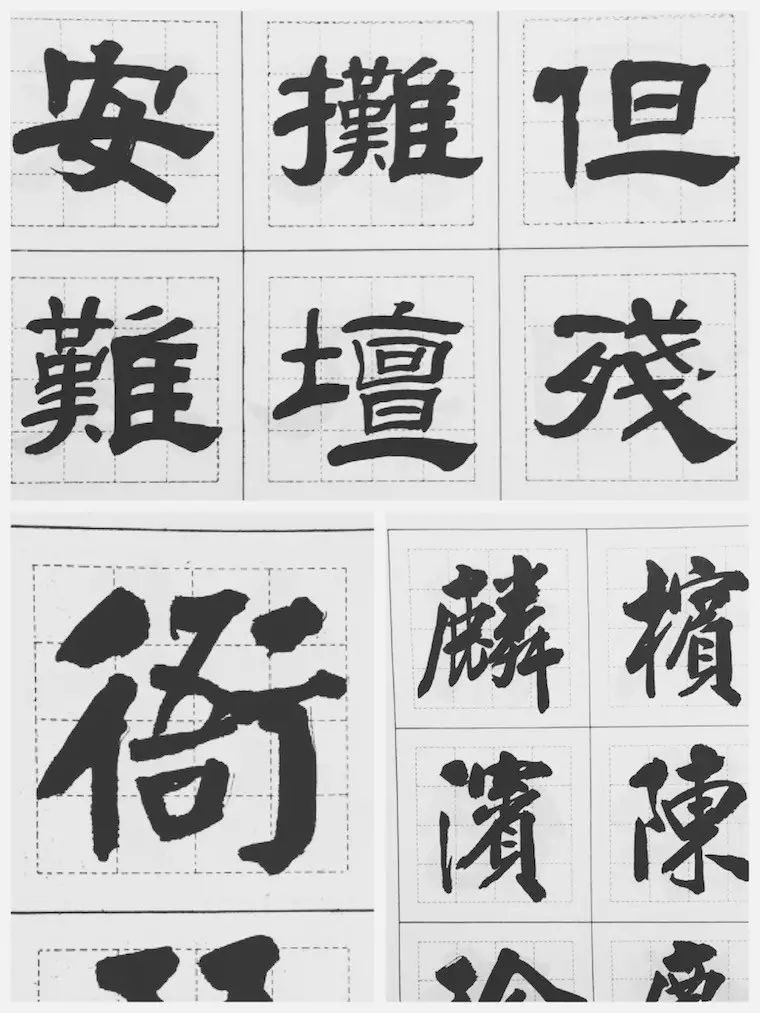 安 攤 但
難 壇 殘
衙
麟 檳
濱 陳